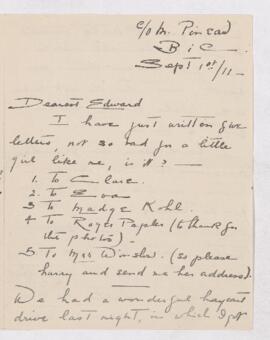 c/o M. Pineau
Bic
Sept 1st/11–
Dearest Edward
I have just written five
letters, not so bad for a little
girl like me, is it? —
1. To Clare.
2. To Eva
3 To Madge Kohl.
4 To Roger Papeter (to thank for
the photos).
5 To Mrs Winslow. (so please
hurry and send me her address).
We had a wonderful haycart
drive last night, in which I got